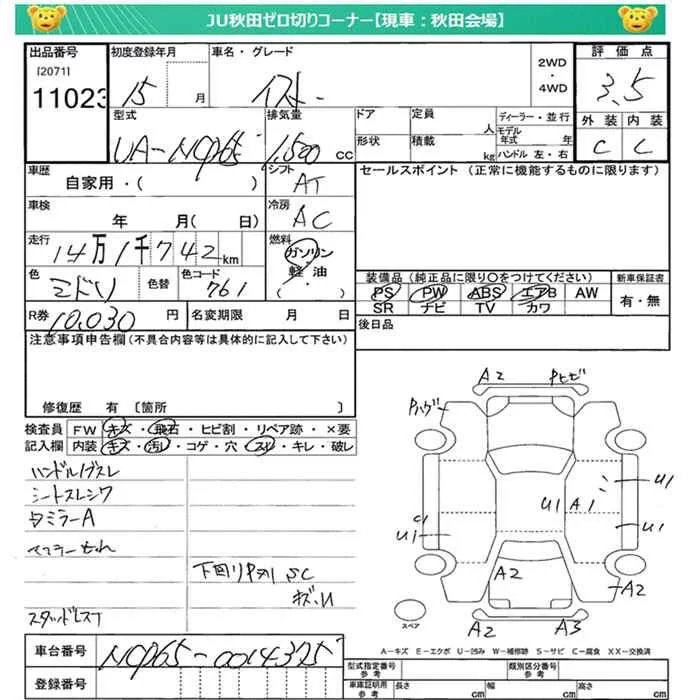 JU秋田ゼロ切りコーナー【現車：秋田会場】
出品番号 初度登録年月 車名・グレード 2WD・4WD 評価点
[2071]
11023 15 月 イスト 3.5
型式 排気量 ドア 定員 人 ディーラー・並行 外装 内装
モデル年式 年
UA-NCP65 1,500 cc 形状 積載 kg ハンドル 左・右 C C
車歴 シフト セールスポイント (正常に機能するものに限ります)
自家用・( ) AT
車検 冷房
年 月( 日) AC
走行 燃料
14万1千742km ガソリン
軽・油
( )
色 色替 色コード 装備品 (純正品に限り○をつけてください) 新車保証書
ミドリ 761 PS PW ABS エアB AW 有・無
SR ナビ TV カワ
R券 10,030円 名変期限 月 日 後日品
注意事項申告欄 (不具合内容等は具体的に記入して下さい)
修復歴 有 〔箇所 〕
検査員 FW キズ・飛石・ヒビ割・リペア跡・×要
記入欄 内装 キズ・汚レ・コゲ・穴・スレ・キレ・破レ
ハンドルノブスレ
シートスレシワ
ミラーA
下回りサビ SC
キズ・U
スタッドレス
A2 Pヒビ
Pハゲ
U1
U1 A1
C1
U1
U1
A2
A2
A2 A3
スペア
A－キズ E－エクボ U－凹み W－補修跡 S－サビ C－腐食 XX－交換済
車台番号 NCP65-0014325
登録番号
型式指定番号 参考 類別区分番号 参考
車庫証明用 参考 長さ cm 幅 cm 高さ cm